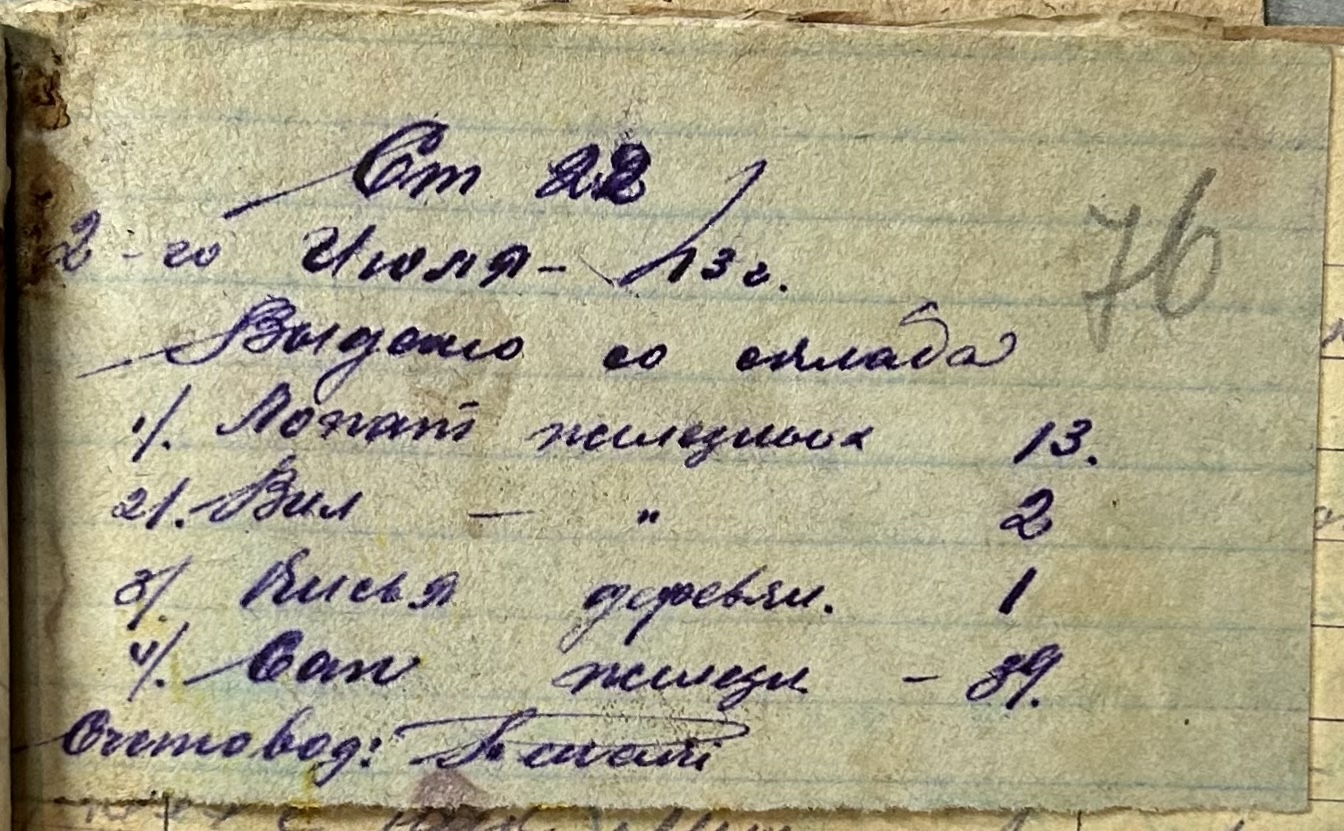 Ст 22
2-го Июля - 13 г. 76
Выдано со склада
1/. Лопат жилезных 13.
2/. Вил — " 2
3/. Кисья деревян. 1
4/. Сап жилезн - 39.
Счетовод: